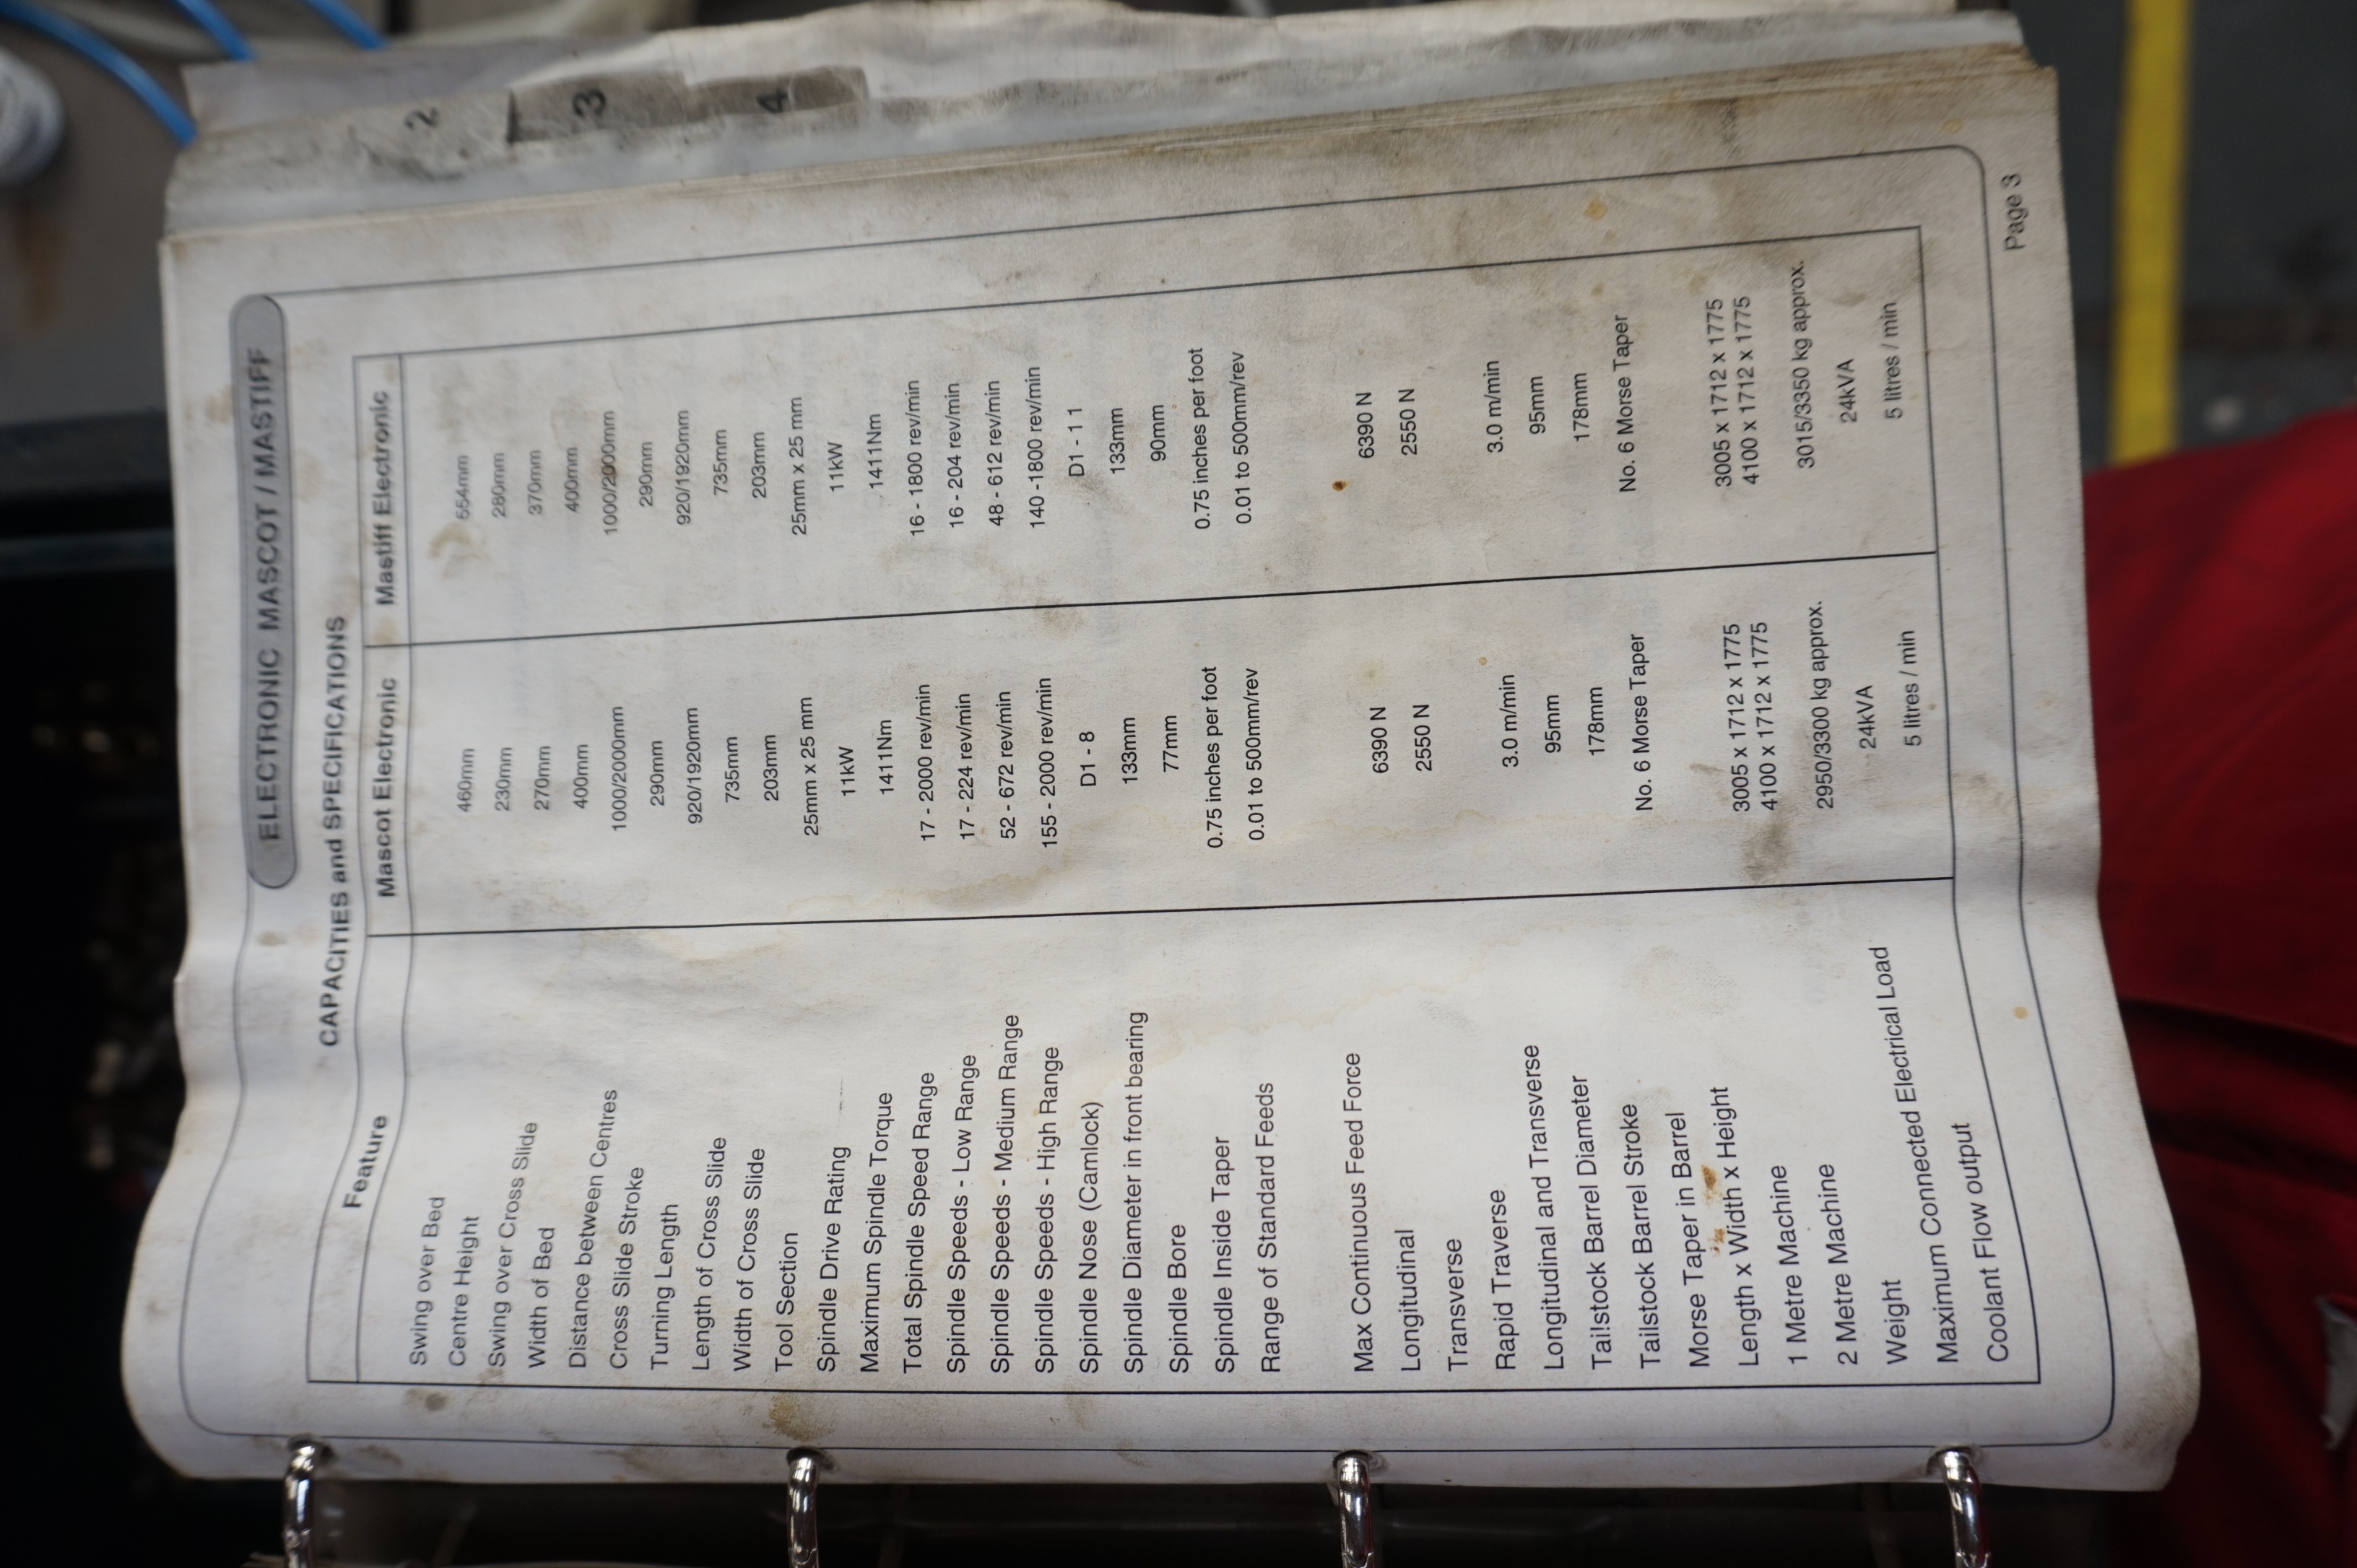 2
3
4
ELECTRONIC MASCOT / MASTIFF
CAPACITIES and SPECIFICATIONS
Feature Mascot Electronic Mastiff Electronic
Swing over Bed 460mm 554mm
Centre Height 230mm 280mm
Swing over Cross Slide 270mm 370mm
Width of Bed 400mm 400mm
Distance between Centres 1000/2000mm 1000/2000mm
Cross Slide Stroke 290mm 290mm
Turning Length 920/1920mm 920/1920mm
Length of Cross Slide 735mm 735mm
Width of Cross Slide 203mm 203mm
Tool Section 25mm x 25 mm 25mm x 25 mm
Spindle Drive Rating 11kW 11kW
Maximum Spindle Torque 1411Nm 1411Nm
Total Spindle Speed Range 17 - 2000 rev/min 16 - 1800 rev/min
Spindle Speeds - Low Range 17 - 224 rev/min 16 - 204 rev/min
Spindle Speeds - Medium Range 52 - 672 rev/min 48 - 612 rev/min
Spindle Speeds - High Range 155 - 2000 rev/min 140 -1800 rev/min
Spindle Nose (Camlock) D1 - 8 D1 - 1 1
Spindle Diameter in front bearing 133mm 133mm
Spindle Bore 77mm 90mm
Spindle Inside Taper 0.75 inches per foot 0.75 inches per foot
Range of Standard Feeds 0.01 to 500mm/rev 0.01 to 500mm/rev
Max Continuous Feed Force
Longitudinal 6390 N 6390 N
Transverse 2550 N 2550 N
Rapid Traverse
Longitudinal and Transverse 3.0 m/min 3.0 m/min
Tailstock Barrel Diameter 95mm 95mm
Tailstock Barrel Stroke 178mm 178mm
Morse Taper in Barrel No. 6 Morse Taper No. 6 Morse Taper
Length x Width x Height
1 Metre Machine 3005 x 1712 x 1775 3005 x 1712 x 1775
2 Metre Machine 4100 x 1712 x 1775 4100 x 1712 x 1775
Weight 2950/3300 kg approx. 3015/3350 kg approx.
Maximum Connected Electrical Load 24kVA 24kVA
Coolant Flow output 5 litres / min 5 litres / min
Page 3